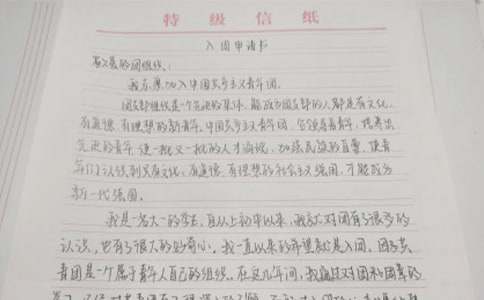 特级信纸
入团申请书
敬爱的团组织:
我志愿加入中国共产主义青年团。
团支部组织是一个先进的集体,能成为团支部的人都是有文化、
有道德、有理想的新青年。中国共产主义青年团,
先进的青年,使一批又一批的人才涌现,加强民族的力量,使青
年们认识到有文化、有道德、有理想的社会主义强国,才能成为
新一代强国。
我是一名大一的学生,自从上初中以来,我就对团有了很多的
认识,也有了很大的好奇心。我一直以来的希望就是入团。团
青团是一个属于青年人自己的组织。在这几年间,我通过对团